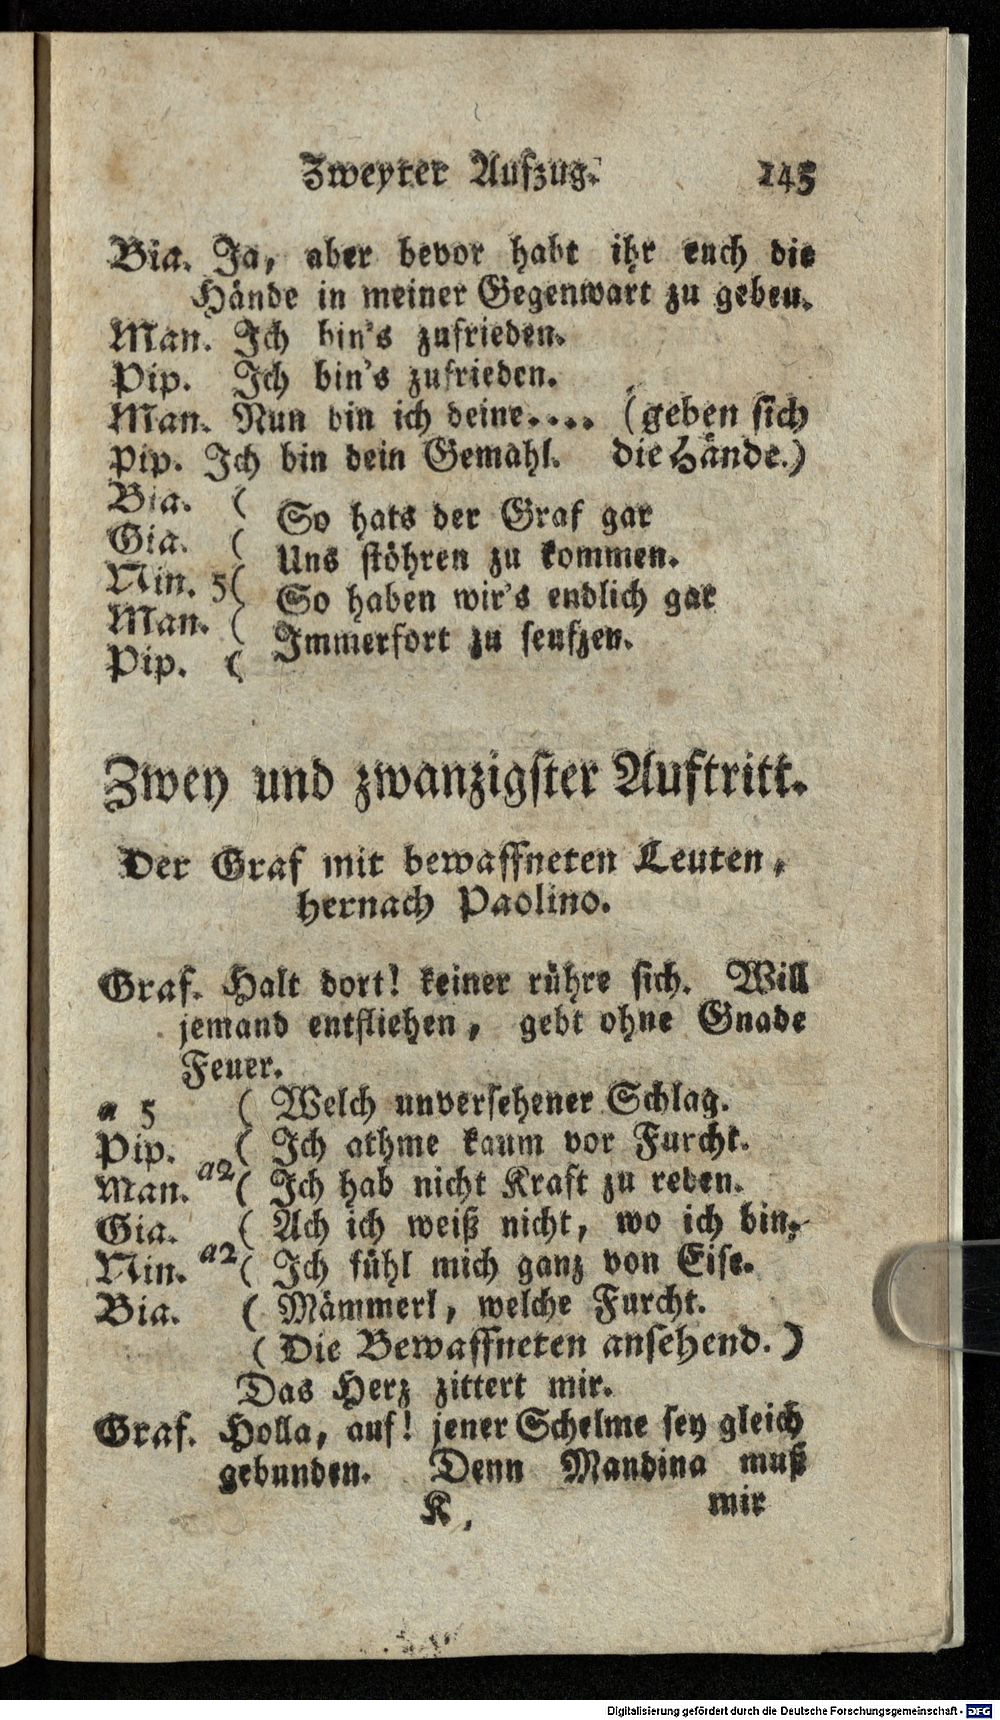 Zweyter Aufzug. 145
Bia. Ja, aber bevor habt ihr euch die
Hände in meiner Gegenwart zu geben.
Man. Ich bin's zufrieden.
Pip. Ich bin's zufrieden.
Man. Nun bin ich deine.... (geben sich
Pip. Ich bin dein Gemahl. die Hände.)
Bia. ( So hats der Graf gar
Gia. ( Uns stöhren zu kommen.
Nin. 5( So haben wir's endlich gar
Man. ( Immerfort zu seufzen.
Pip. (
Zwey und zwanzigster Auftritt.
Der Graf mit bewaffneten Leuten,
hernach Paolino.
Graf. Halt dort! keiner rühre sich. Will
jemand entfliehen, gebt ohne Gnade
Feuer.
a 5 ( Welch unversehener Schlag.
Pip. ( Ich athme kaum vor Furcht.
Man. a2( Ich hab nicht Kraft zu reden.
Gia. ( Ach ich weiß nicht, wo ich bin.
Nin. a2( Ich fühl mich ganz von Eise.
Bia. ( Mämmerl, welche Furcht.
(Die Bewaffneten ansehend.)
Das Herz zittert mir.
Graf. Holla, auf! jener Schelme sey gleich
gebunden. Denn Mandina muß
K, mir
Digitalisierung gefördert durch die Deutsche Forschungsgemeinschaft - DFG